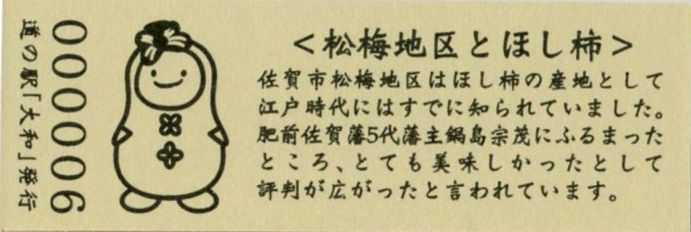 <松梅地区とほし柿>
佐賀市松梅地区はほし柿の産地として
江戸時代にはすでに知られていました。
肥前佐賀藩5代藩主鍋島宗茂にふるまった
ところ、とても美味しかったとして
評判が広がったと言われています。
000006
道の駅「大和」発行